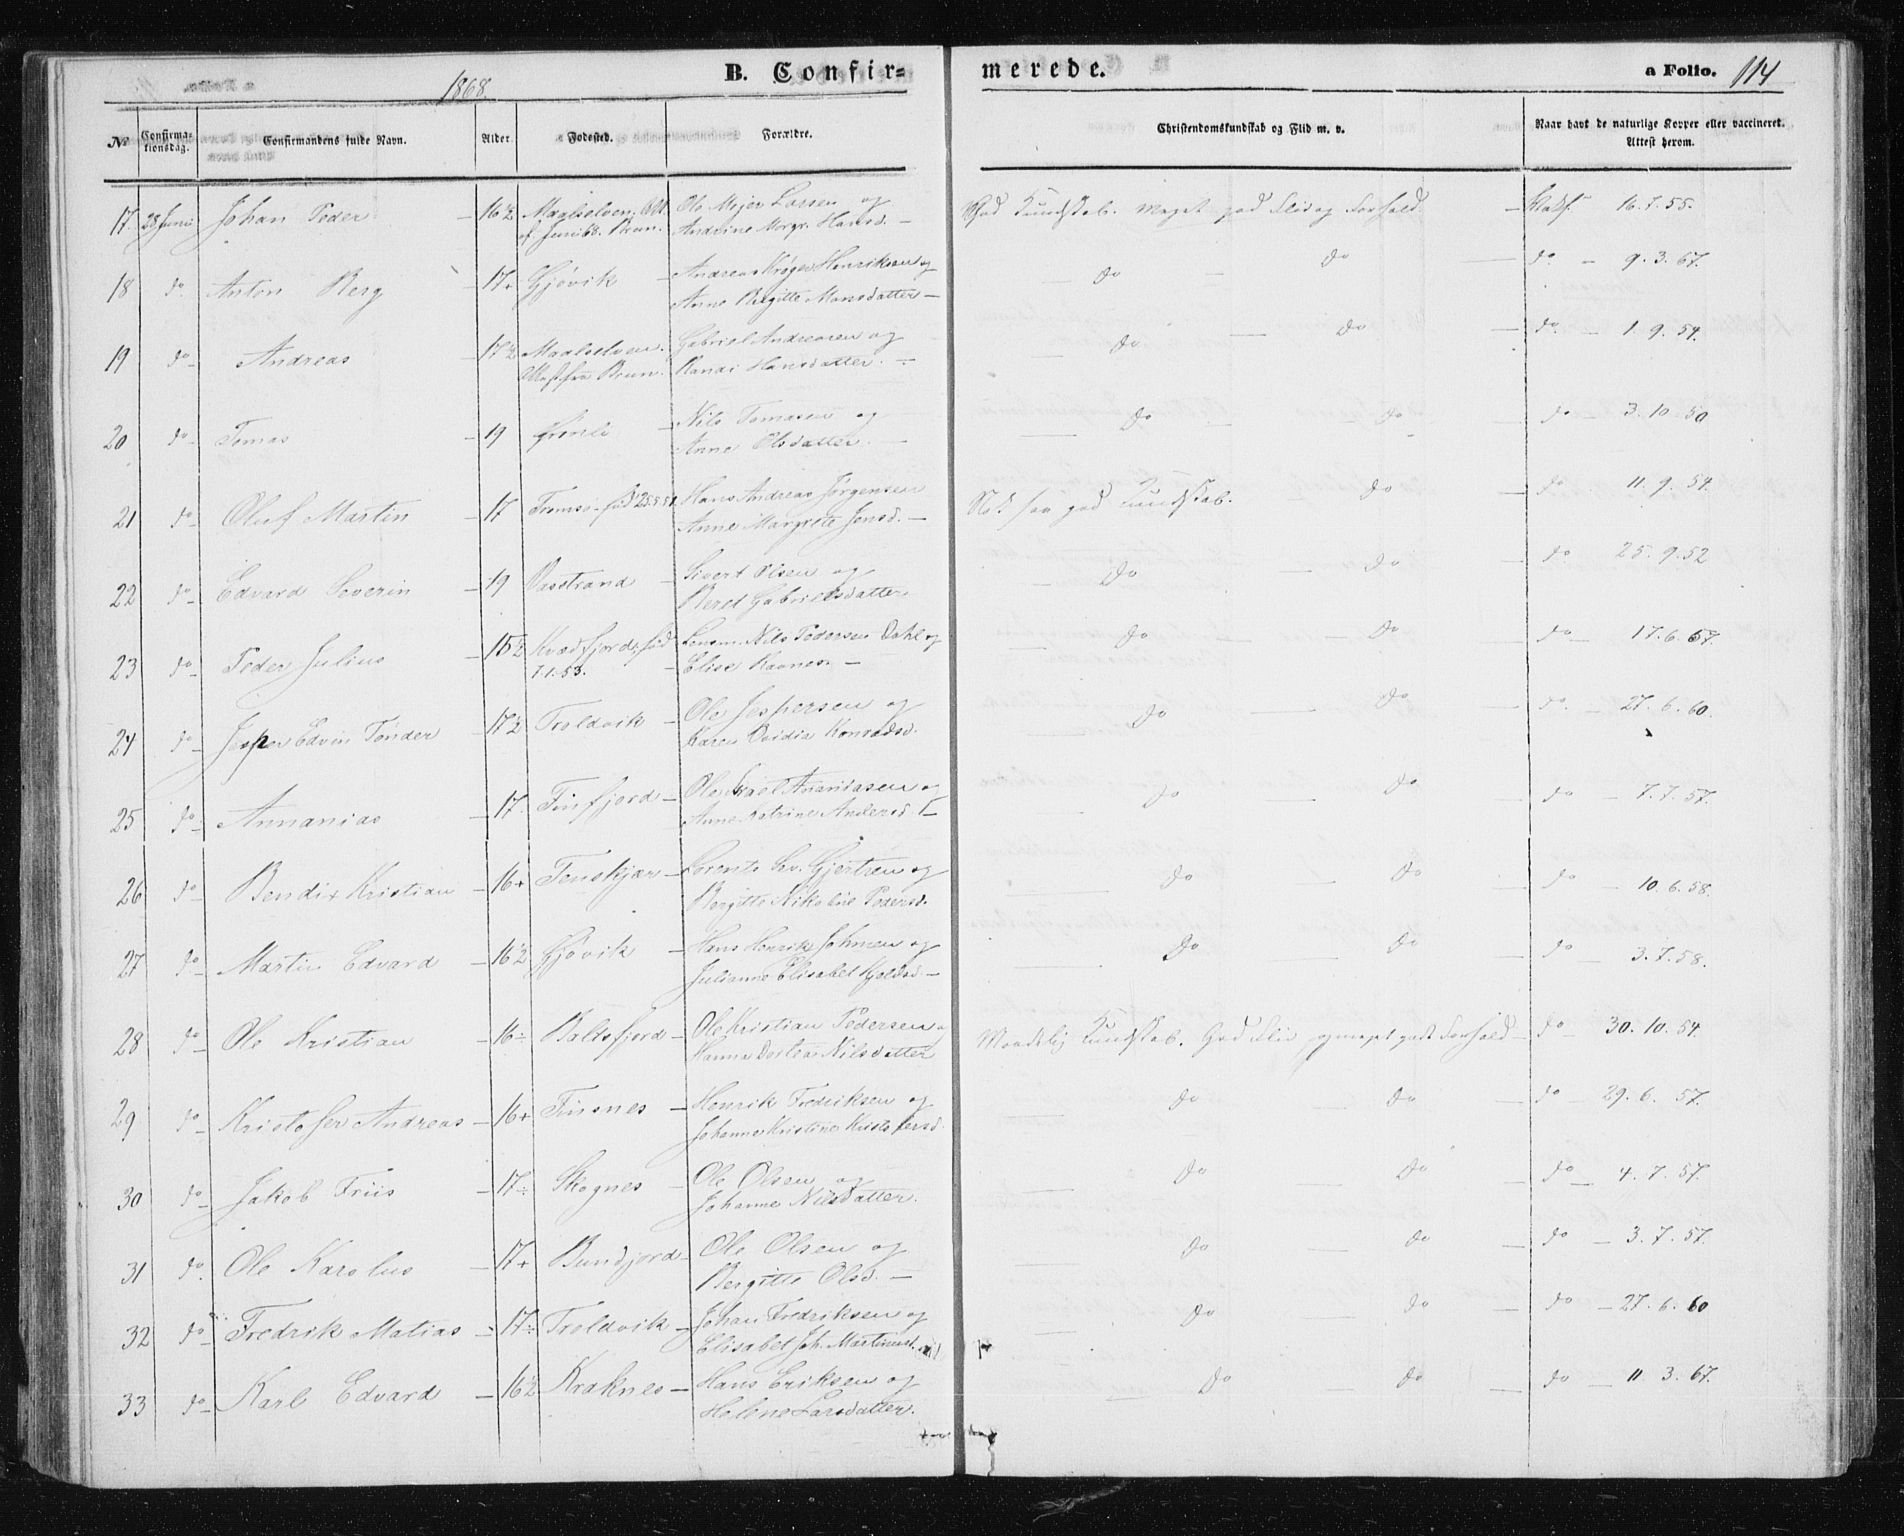 1868
B. Confir=
merede.
a Folio. 114
№ Confirma-tionsdag. Confirmandens fulde Navn. Alder. Fødested. Forældre. Christendomskundskab og Flid m. v. Naar havt de naturlige Kopper eller vaccineret. Attest herom.
17. 28 Juni Johan Peder 16½ Maalselven, Att. Ole Mejer Larsen og God Kundskab. Meget god Flid og Forhold. Vaks. 16. 7. 55.
af Juni 68. Brun. Andrine Margr. Hansd.
18 do Anton Berg 17+ Gjøvik Andreas Krøger Henriksen og do do do 9. 3. 67.
Anne Birgitte Monsdatter
19 do Andreas 17½ Maalselven. Gabriel Andreasen og do do do 1. 9. 54.
Attest fra Brun. Randi Hansdatter.
20 do Tomas 19 Grønli Nils Tomasen og do do do 3. 10. 50
Anne Olsdatter.
21 do Oluf Martin 17 Tromsø født 25.5.51 Hans Andreas Jørgensen Nok saa god Kundskab. do do 11. 9. 54.
Anne Margrete Jensd.
22 do Edvard Severin 19 Vasstrand Sivert Olsen og do do do 25. 9. 52
Beret Gabrielsdatter
23 do Peder Julius 15½ Kvædfjord, fød Lensm. Nils Pedersen Dahl og do do do 17. 6. 67.
7.1.53. Elise
24 do Jesper Edvin Tønder 17½ Troldvik Ole Jespersen og do do do 27. 6. 60.
Karen Ovidia Konradsd.
25 do Annanias 17 Finfjord Ole Israel Ananiasen og do do do 7. 7. 57.
Anne Katrine Andersd
26 do Bendix Kristian 16+ Tenskjær Lorents Sev. Gjertsen og do do do 10. 6. 58.
Bergitte Nikoline Pedersd.
27 do Martin Edvard 16½ Gjøvik Hans Henrik Johnsen og do do do 3. 7. 58.
Julianne Elisabet Kjeldsd
28 do Ole Kristian 16÷ Baldsfjord Ole Kristian Pedersen og Maadelig Kundskab. God Flid og meget godt Forhold do 30. 10. 54.
Hanna Dortea Nilsdatter
29 do Kristofer Andreas 16+ Finsnes Henrik Fredriksen og do do do 29. 6. 57.
Johanne Kristine Kristofersd.
30 do Jakob Friis 17÷ Skognes Ole Olsen og do do do 4. 7. 57.
Johanne Nilsdatter.
31 do Ole Karolus 17+ Bundjord Ole Olsen og do do do 3. 7. 57.
Bergitte Olsd.
32 do Fredrik Matias 17÷ Troldvik Johan Fredriksen og do do do 27. 6. 60
Elisabet Joh. Martinusd.
33 do Karl Edvard 16½ Kraknes Hans Eriksen og do do do 11. 3. 67.
Helene Larsdatter.